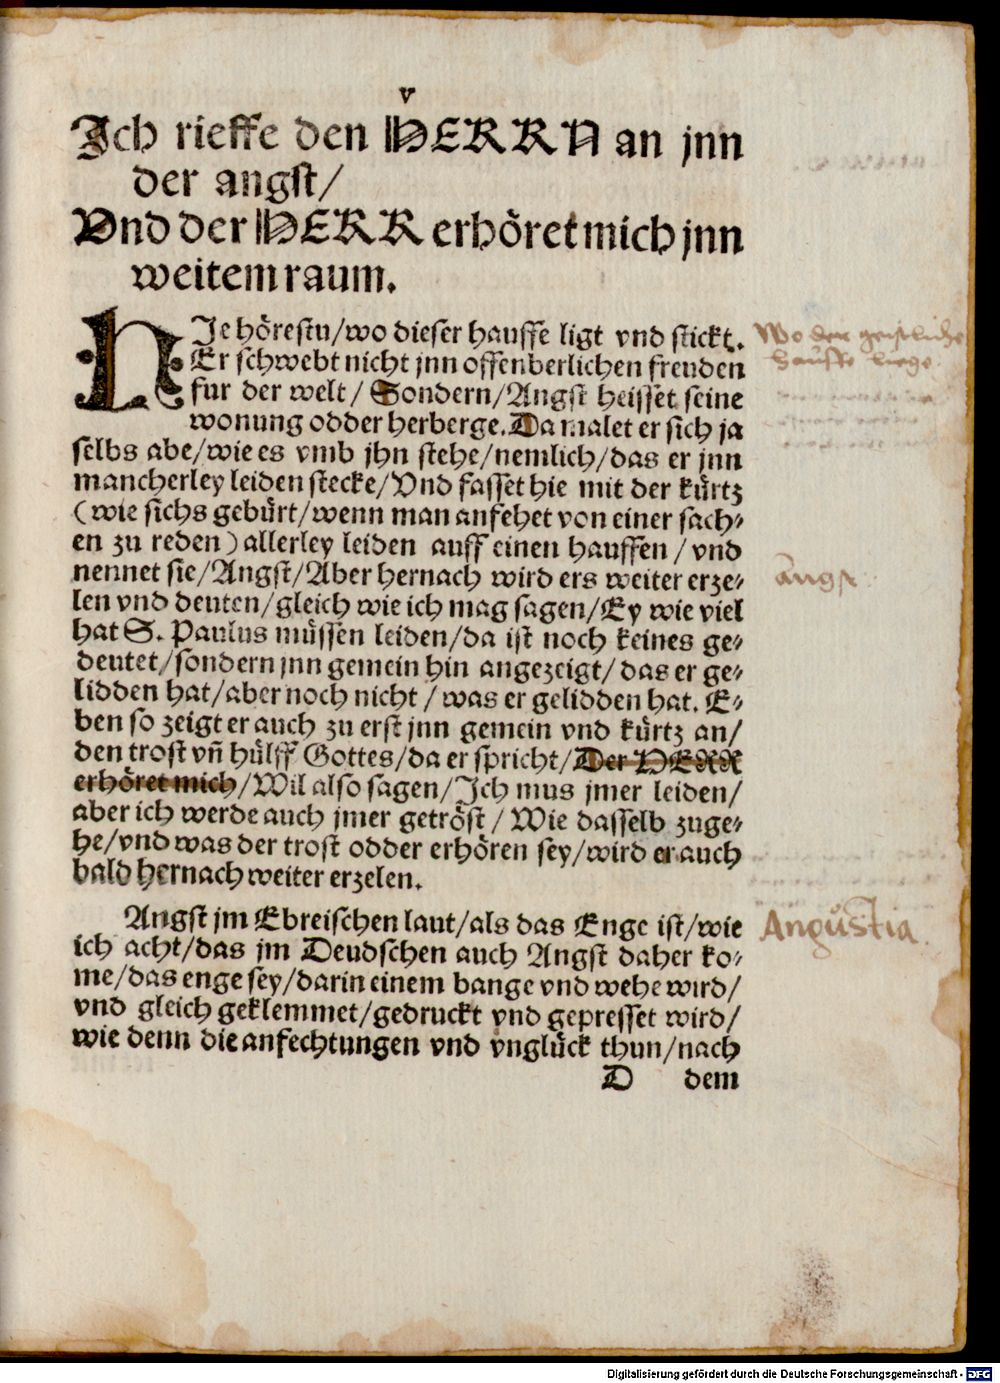 v
Ich rieffe den HERRN an jnn
der angst/
Vnd der HERR erhöret mich jnn
weitem raum.
HIe hörestu/wo dieser hauffe ligt vnd stickt.
Er schwebt nicht jnn offenberlichen freuden
fur der welt/ Sondern/Angst heisset seine
wonung odder herberge. Da malet er sich ja
selbs abe/wie es vmb jhn stehe/nemlich/das er jnn
mancherley leiden stecke/Vnd fasset hie mit der kürtz
(wie sichs gebürt/wenn man anfehet von einer sach⸗
en zu reden) allerley leiden auff einen hauffen/vnd
nennet sie/Angst/Aber hernach wird ers weiter erze⸗
len vnd deuten/gleich wie ich mag sagen/Ey wie viel
hat S. Paulus müssen leiden/da ist noch keines ge⸗
deutet/sondern jnn gemein hin angezeigt/das er ge⸗
lidden hat/aber noch nicht/was er gelidden hat. E⸗
ben so zeigt er auch zu erst jnn gemein vnd kürtz an/
den trost vñ hülff Gottes/da er spricht/Der HERR
erhöret mich/Wil also sagen/Ich mus jmer leiden/
aber ich werde auch jmer getröst/Wie dasselb zuge⸗
he/vnd was der trost odder erhören sey/wird er auch
bald hernach weiter erzelen.
Angst jm Ebreischen laut/als das Enge ist/wie
ich acht/das jm Deudschen auch Angst daher ko⸗
me/das enge sey/darin einem bange vnd wehe wird/
vnd gleich geklemmet/gedruckt vnd gepresset wird/
wie denn die anfechtungen vnd vnglück thun/nach
D dem
Wo der geistliche
hauffe liege.
angst
Angustia.
Digitalisierung gefördert durch die Deutsche Forschungsgemeinschaft - DFG